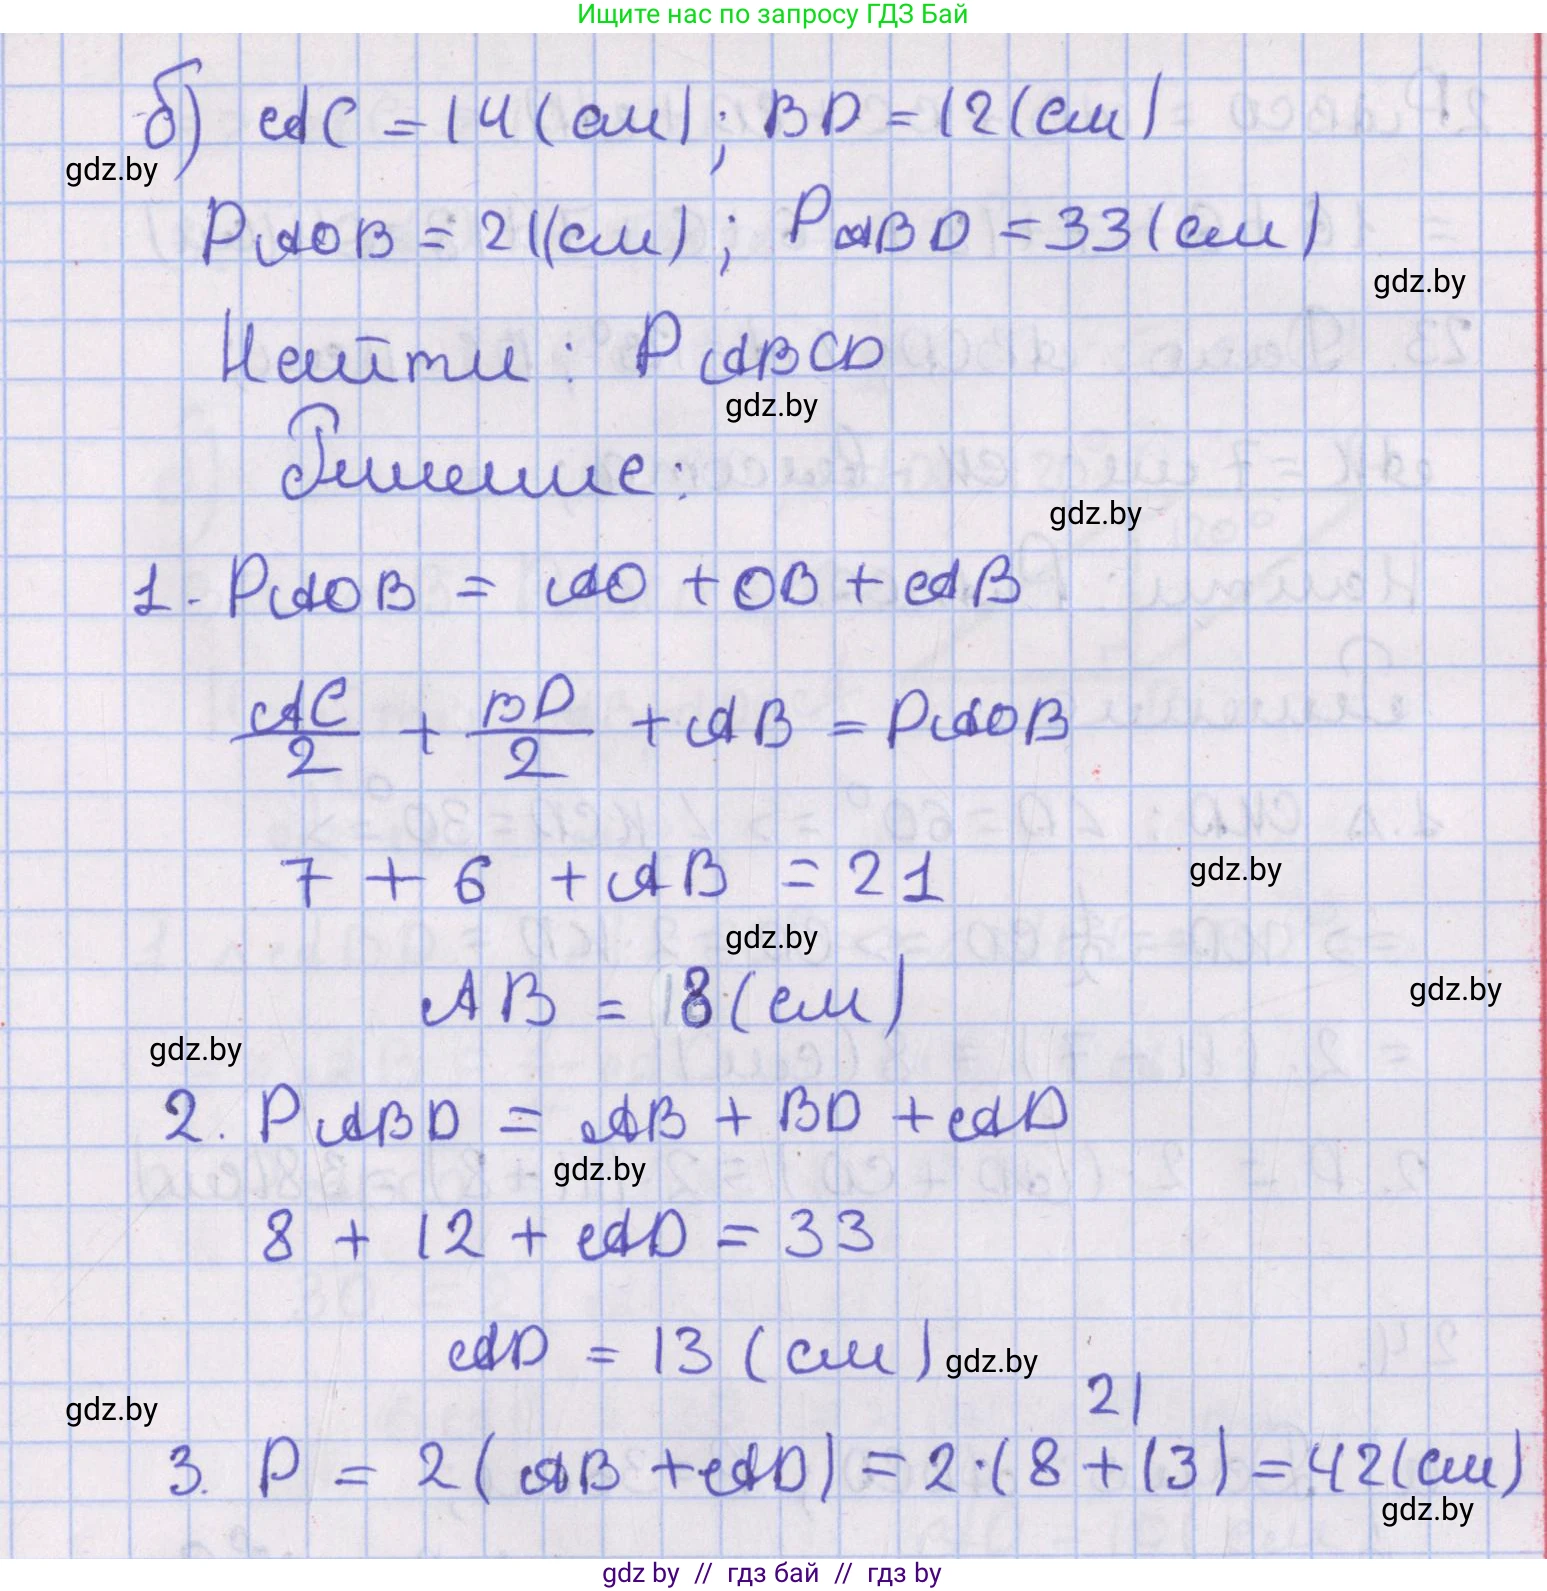 Ищите нас по запросу ГДЗ Бай
б) AC = 14 (см); BD = 12 (см)
gdz.by
PAOB = 21 (см); PABD = 33 (см)
gdz.by
Найти: PABCD
gdz.by
Решение:
gdz.by
1. PAOB = AO + OB + AB
AC/2 + BD/2 + AB = PAOB
7 + 6 + AB = 21
gdz.by
gdz.by
AB = 8 (см)
gdz.by
gdz.by
2. PABD = AB + BD + AD
gdz.by
8 + 12 + AD = 33
AD = 13 (см)
gdz.by
gdz.by
21
3. P = 2(AB + AD) = 2·(8 + 13) = 42 (см)
gdz.by
gdz by // гдз бай // гдз by